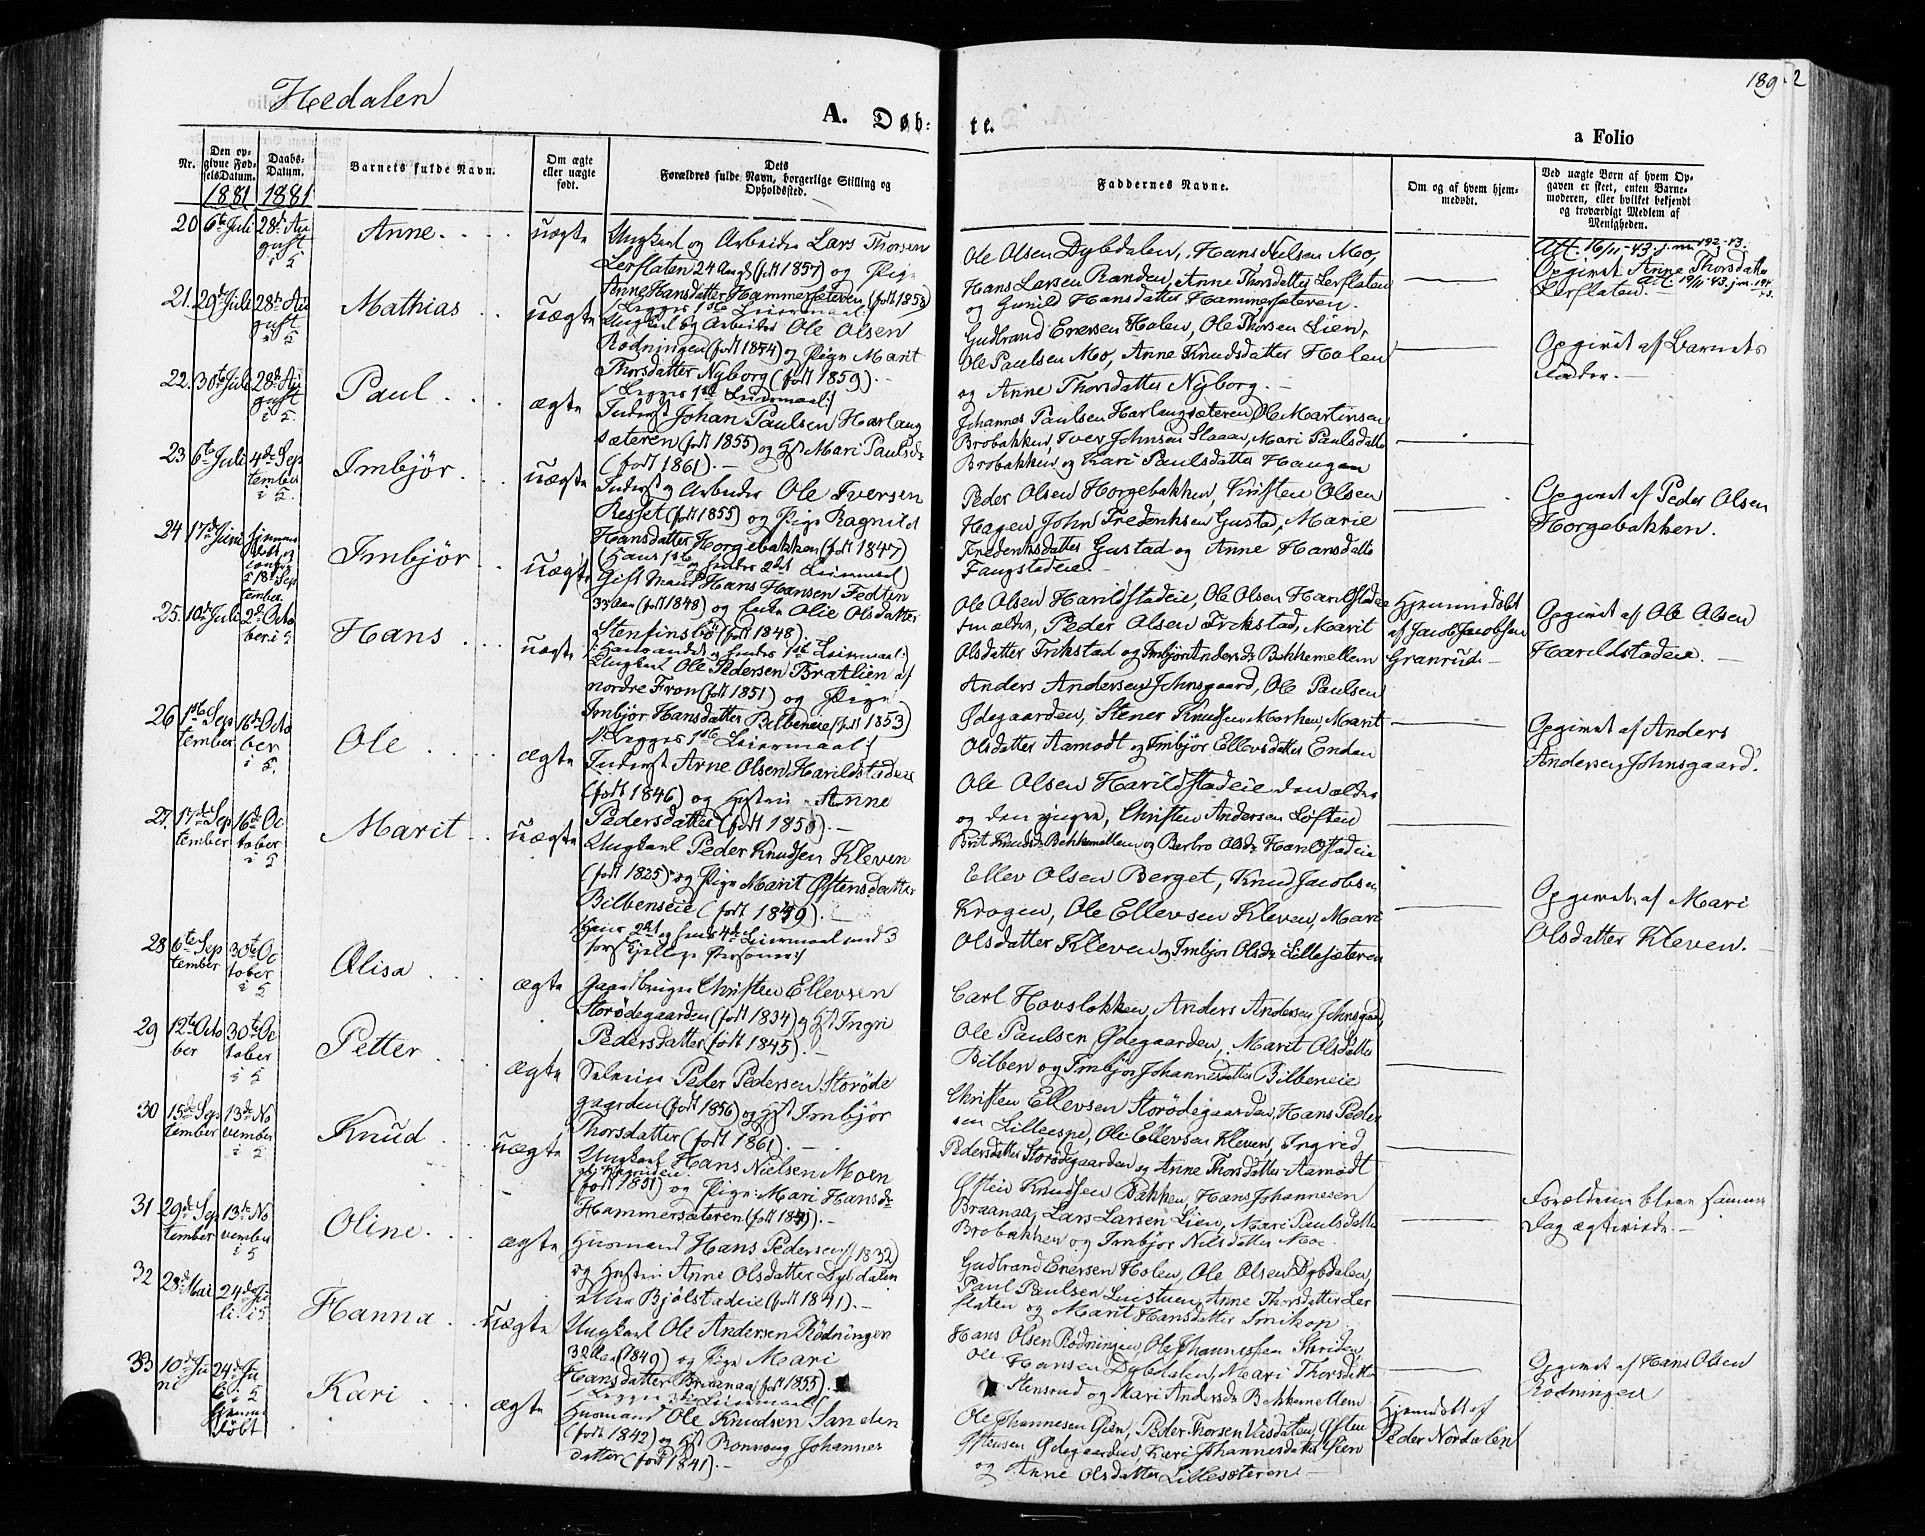 Hedalen
189
2
A. Døb-
te.
a Folio
Nr.
Den op-
givne Fød-
selsDatum.
1881
Daabs-
Datum.
1881
Barnets fulde Navn.
Om ægte
eller uægte
født.
Dets
Forældres fulde Navn, borgerlige Stilling og
Opholdssted.
Faddernes Navne.
Om og af hvem hjem-
medøbt.
Ved uægte Børn af hvem Op-
gaven er skeet, enten Barne-
moderen, eller hvilket bekjendt
og troværdigt Medlem af
Menigheden.
20 6te Juli 28de Au
gust
i 5
Anne
uægte
Ungkarl og Arbeider Lars Thorsen
Lerflaten 24 (født 1857) og Pige
Anne Hansdatter Hammersæteren (født 1858)
(Begges 1ste Leiermaal)
Ole Olsen Dybdalen, Hans Nielsen Mo,
Hans Larsen Randen, Anne Thorsdatter Lerflaten
og Gunild Hansdatter Hammersæteren.
Att. 16/11-43. j.nr. 192-43.
Opgivet Anne Thorsdatter
Lerflaten. Att. 19/11 43. j.nr.
21. 29de Juli 28de Au
gust
i 5
Mathias
uægte
Ungkarl og Arbeider Ole Olsen
Rødningen (født 1854) og Pige Marit
Thorsdatter Nyborg (født 1859).
(Begges 1ste Leiermaal)
Gudbrand Enersen Holen, Ole Thorsen Lien,
Ole Paulsen Mo, Anne Knudsdatter Holen
og Anne Thorsdatter Nyborg.
Opgivet af Barnets
Fader.
22. 30te Juli 28de Au
gust
i 5.
Paul
ægte
Inderst Johan Paulsen Harlaug
sæteren (født 1855) og Hst Mari Paulsdr
(født 1861).
Johannes Paulsen Harlaugsæteren, Ole Martinsen
Brobakken, Iver Johnsen Slaaen, Mari Paulsdatter
Brobakken og Kari Paulsdatter Haugen
23 6te Juli 4de Sep
tember
i 5.
Imbjør
uægte
Inderst og Arbeider Ole Iversen
Resset (født 1855) og Pige Ragnild
Hansdatter Horgebakken (født 1847)
(Hans 1ste og hendes 2det Leiermaal)
Peder Olsen Horgebakken, Kristen Olsen
Hagen, John Fredriksen Gustad, Marie
Fredriksdatter Gustad og Anne Hansdatter
Faugstadeie.
Opgivet af Peder Olsen
Horgebakken.
24 17de Juni
18de Sep
tember.
Imbjør
uægte
Gift Mand Hans Hansen Fedtin
33 Aar (født 1848) og Enke Olie Olsdatter
Stenfinsbø (født 1848)
Ole Olsen Harildstadeie, Ole Olsen Harildstadeie
den ældre, Peder Olsen Frikstad, Marit
Olsdatter Frikstad og Imbjør Andersdr Bekkemellem
Hjemmedøbt
af Jacob Jacobsen
Granrud
Opgivet af Ole Olsen
Harildstadeie.
25. 10de Juli 2den Octo
ber i 5
Hans
uægte
Ungkarl Ole Pedersen Bratlien af
nordre Fron (født 1851) og Pige
Imbjør Hansdatter Bilbeneie (født 1853)
(Begges 1ste Leiermaal)
Anders Andersen Johnsgaard, Ole Paulsen
Ødegaarden, Stener Knudsen Morken, Marit
Olsdatter Aamodt og Imbjør Ellevsdatter Enden
Opgivet af Anders
Andersen Johnsgaard.
26 1ste Sep
tember 16de Octo
ber
i 5.
Ole
ægte
Inderst Arne Olsen Harildstadeie
(født 1846) og Hustru Anne
Pedersdatter (født 1850).
Ole Olsen Harildstadeie den ældre
og den yngre, Christen Andersen Løften
Brit Knudsdr Bekkemellem og Barbro Olsdr Harildstadeie
27. 17de Sep
tember 16de Oc
tober
i 5
Marit
uægte
Ungkarl Peder Knudsen Kleven
(født 1825) og Pige Marit Østensdatter
Bilbenseie (født 1849).
(Hans 2det og hendes 4de Leiermaal med 3
forskjellige Personer)
Ellev Olsen Berget, Knud Jacobsen
Krogen, Ole Ellevsen Kleven, Mari
Olsdatter Kleven og Imbjør Olsdr Lillesæteren
Opgivet af Mari
Olsdatter Kleven.
28 6te Sep
tember 30te Oc
tober
i 5
Olisa
ægte
Gaardbruger Christen Ellevsen
Storødegaarden (født 1834) og Hst Ingri
Pedersdatter (født 1845).
Carl Hovsløkken, Anders Andersen Johnsgaard,
Ole Paulsen Ødegaarden, Marit Olsdatter
Bilben og Imbjør Johannesdatter Bilbeneie
29 12te Octo
ber 30te Oc
tober
i 5
Petter
ægte
Selveier Peder Pedersen Storøde
gaarden (født 1856) og Hst Imbjør
Thorsdatter (født 1861).
Christen Ellevsen Storødegaarden, Hans Peder
sen Lilleespe, Ole Ellevsen Kleven, Ingred
Pedersdatter Storødegaarden og Anne Thorsdatter Aamodt
30 15de Sep
tember 13de No
vember
i 5
Knud
uægte
Ungkarl Hans Nielsen Moen
(født 1851) og Pige Mari Hansdr
Hammersæteren (født 1849).
Østen Knudsen Bakken, Hans Johannesen
Braanaa, Lars Larsen Lien, Mari Paulsdatter
Brobakken og Imbjør Nilsdatter Moe.
Forældrene bleve samme
Dag ægteviede.
31 29de Sep
tember 13de No
vember
i 5
Oline
ægte
Husmand Hans Pedersen (f. 1832)
og Hustru Anne Olsdatter Dybdalen
eller Bjølstadeie (født 1841).
Gudbrand Enersen Holen, Ole Olsen Dybdalen,
Paul Paulsen Luestuen, Anne Thorsdatter Ler
flaten og Marit Hansdatter Snikop
32 23de Mai 24de Ju
li i 5
Hanna
uægte
Ungkarl Ole Andersen Rødningen
32 Aar (1849) og Pige Mari
Hansdatter Braanaa (født 1855).
Hans Olsen Rødningen, Ole Johannessen Skriden,
Ole Hansen Dybdalen, Mari Thorsdatter
Stensrud og Mari Andersdr Bekkemellem
Opgivet af Hans Olsen
Rødningen
33 10de Ju
ni 24de Ju
li i 5
Hjemme
døbt
Kari
ægte
Husmand Ole Knudsen Sanden
(født 1842) og Hst Ronnaug Johannes
datter (født 1841).
Ole Johannesen Gien, Peder Thorsen Uisdalen, Østen
Østensen Ødegaarden, Kari Johannesdatter Gien
og Anne Olsdatter Lillesæteren.
Hjemdøbt af
Peder Nordalen